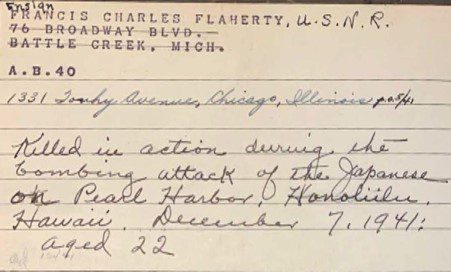 Ensign
FRANCIS CHARLES FLAHERTY, U.S.N.R.
76 BROADWAY BLVD.
BATTLE CREEK, MICH.
A.B.40
1331 Touhy Avenue, Chicago, Illinois
Killed in action during the
bombing attack of the Japanese
on Pearl Harbor, Honolulu,
Hawaii, December 7, 1941;
aged 22